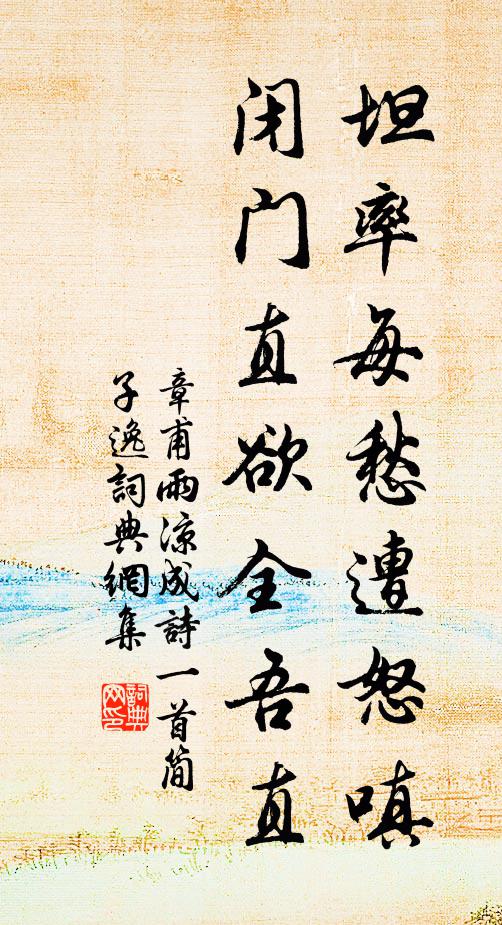 坦率每愁遭怒嗔
闭门直欲全吾直
章甫雨涼成詩一首简
子逸詞典網集
詞典网印